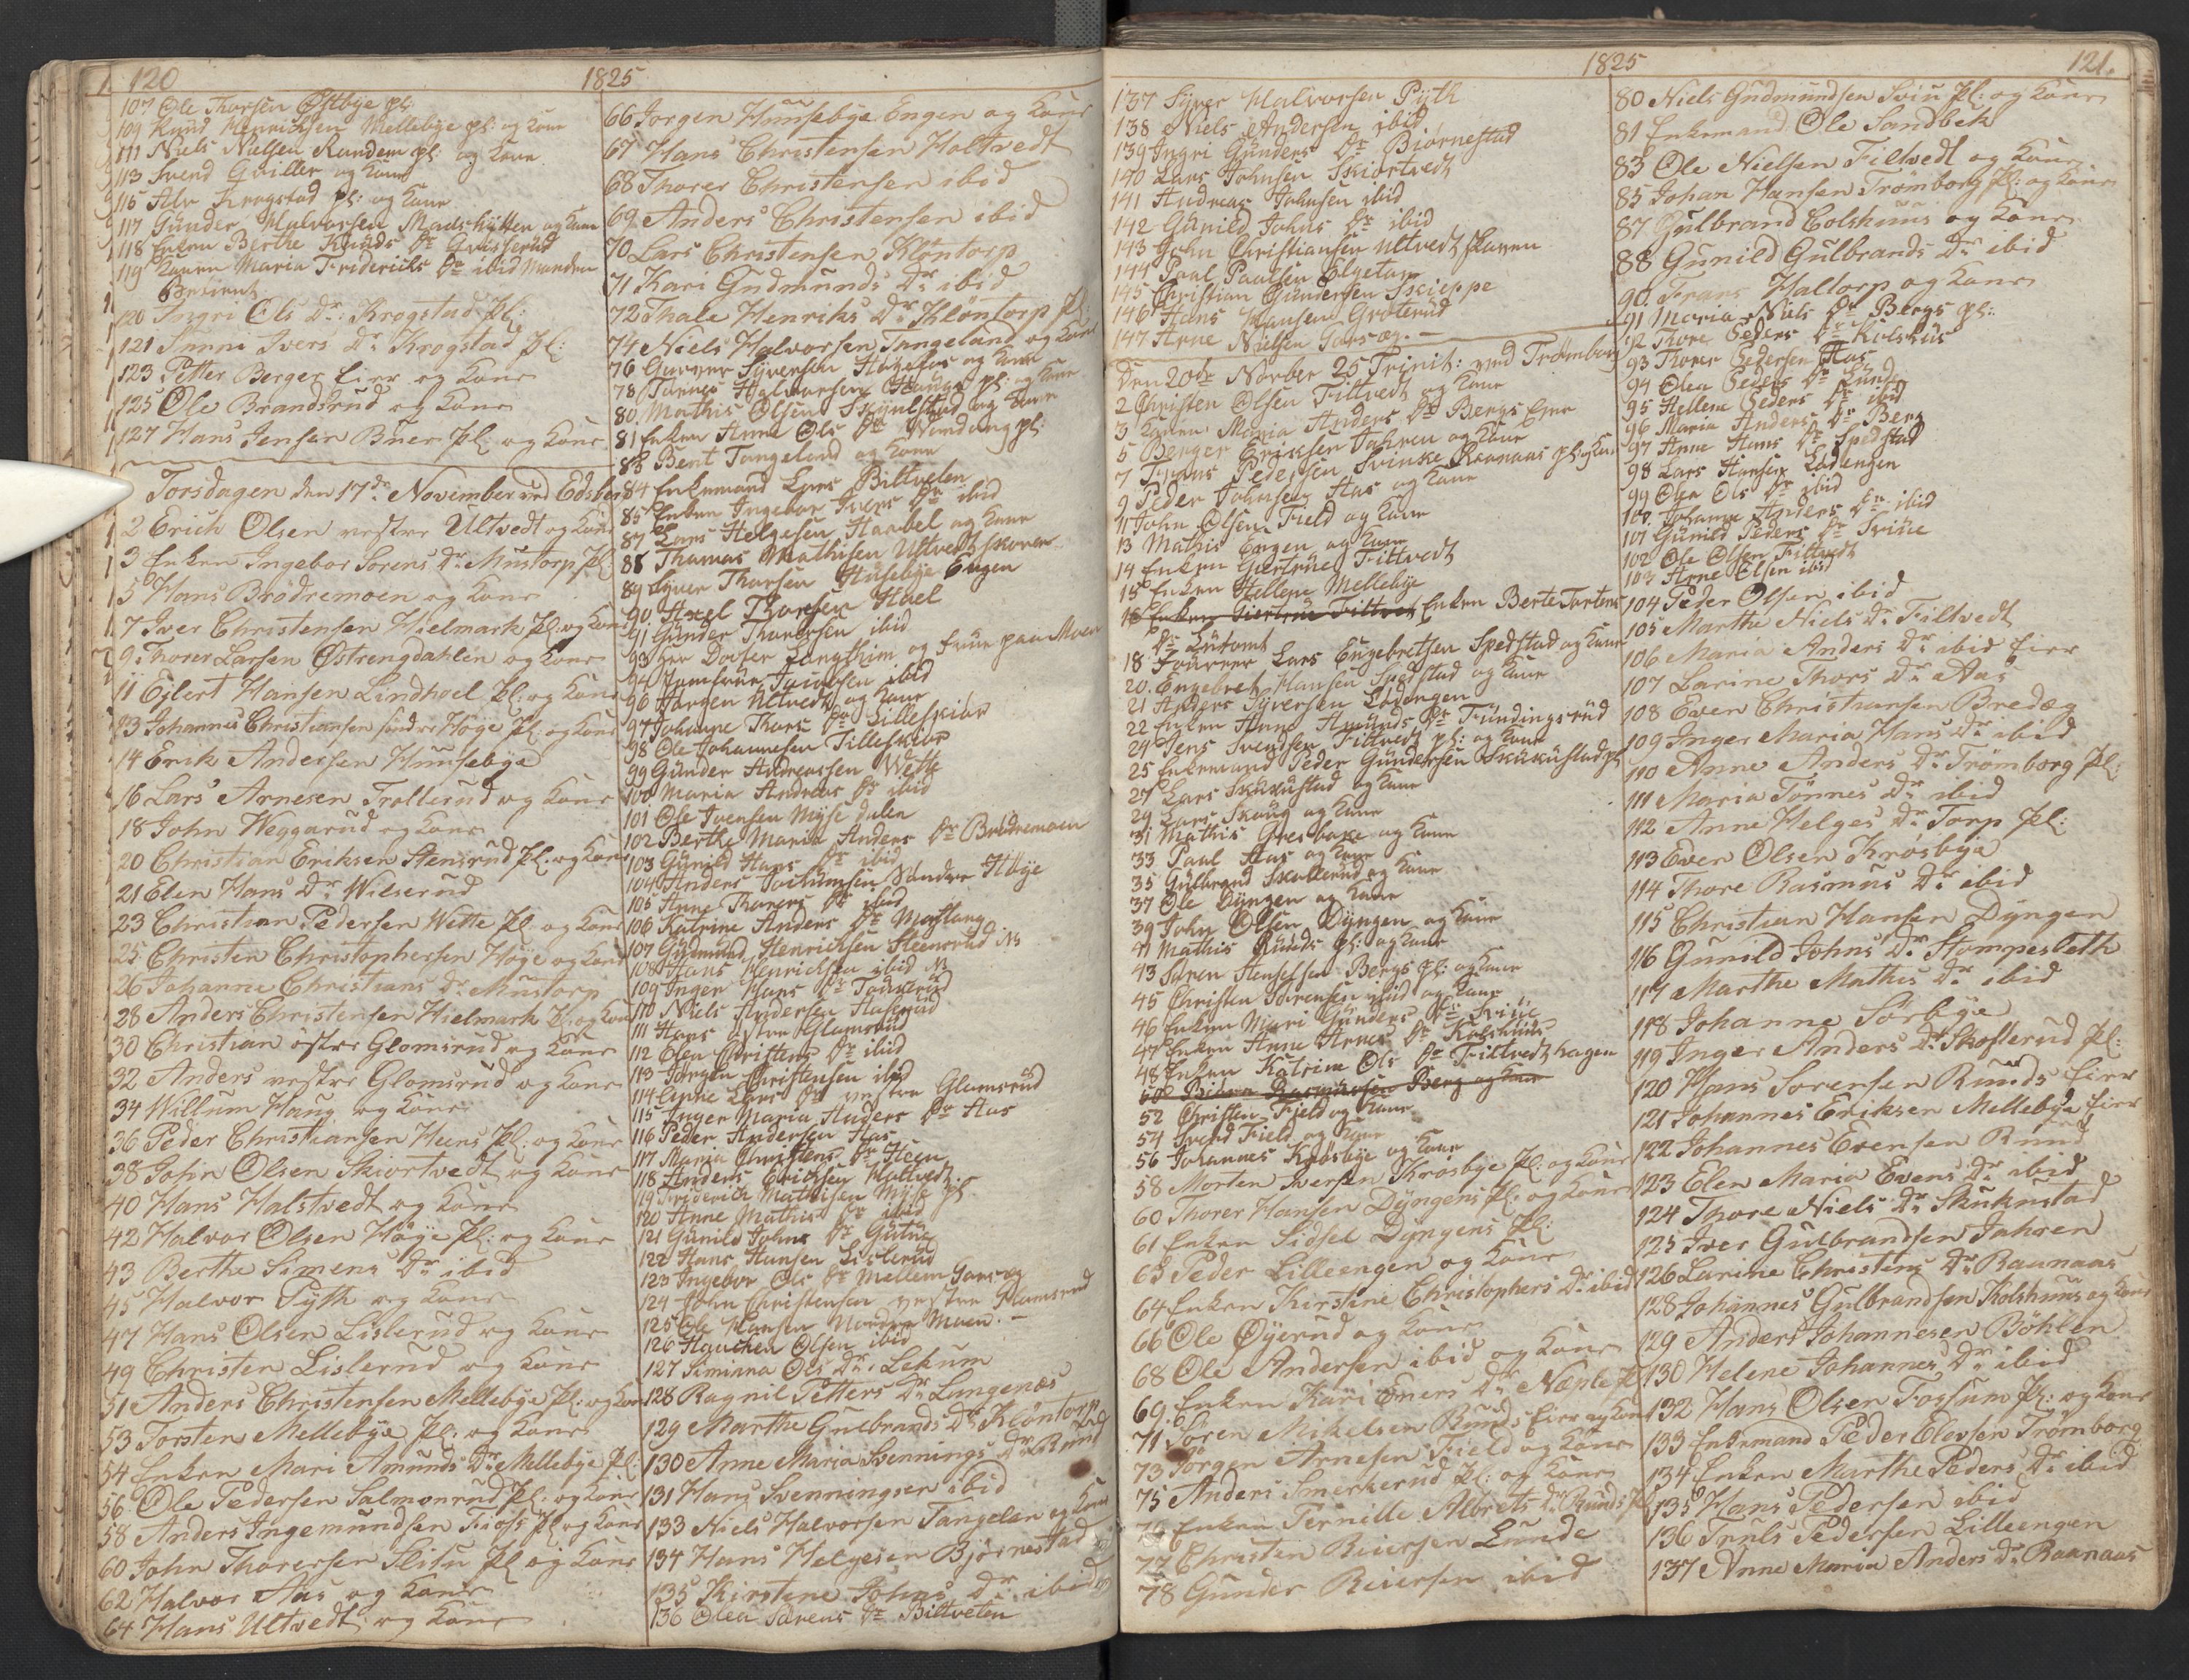 120
1825
107 Ole Thorsen Østbye pl:
109 Knud Henrichsen Mellebye pl: og Kone
111 Niels Nielsen Randem pl: og Kone
113 Svend Gviller og Kone
115 Alv Krogstad pl: og Kone
117 Gunder Halvorsen Madshytten og Kone
118 Enken Berthe Knuds Dr
119 Konen Maria Frideriks Dr ibid Manden
Betient
120 Ingri Ols Dr: Krogstad pl:
121 Anne Ivers Dr Krogstad pl:
123 Petter Berger Eier og Kone
125 Ole Brandsrud og Kone
127 Hans Jensen Buer pl: og Kone
Torsdagen den 17de November ved Edsber
2 Erich Olsen vestre Ultvedt og Kone
3 Enken Ingebor Sorens Dr Mustorp pl:
5 Hans Brödremoen og Kone
7 Iver Christensen Hielmark pl: og Kone
9 Thorer Larsen Østrengdahlen og Kone
11 Eglert Hansen Lindhoel pl: og Kone
13 Johannes Christiansen söndre Höge pl: og Kone
14 Erik Andersen Huusebye
16 Lars Arnesen Trollerud og Kone
18 John Weggarud og Kone
20 Christian Eriksen Stensrud pl: og Kone
21 Elen Hans Dr Wilserud
23 Christian Pedersen Wette pl: og Kone
25 Christen Christophersen Höye og Kone
26 Johanne Christians Dr Mustorp
28 Anders Christensen Hielmark pl: og Kone
30 Christian östre Glomsrud og Kone
32 Anders vestre Glomsrud og Kone
34 Willum Haug og Kone
36 Peder Christiansen Heens pl: og Kone
38 John Olsen Skiortvedt og Kone
40 Hans Halstvedt og Kone
42 Halvor Olsen Höye pl: og Kone
43 Berthe Simens Dr ibid
45 Halvor Pyth og Kone
47 Hans Olsen Lislerud og Kone
49 Christen Lislerud og Kone
51 Anders Christensen Mellebye pl: og Kone
53 Torsten Mellebye pl: og Kone
54 Enken Mari Amunds Dr Mellebye pl:
56 Ole Pedersen Salmonrud pl: og Kone
58 Anders Ingemundsen Fioss pl: og Kone
60 John Thorersen Slitu pl: og Kone
62 Halvor Aas og Kone
64 Hans Ultvedt og Kone
66 Jorgen Huusebye Engen og Kone
67 Hans Christensen Holtvedt
68 Thorer Christensen ibid
69 Anders Christensen ibid
70 Lars Christensen Klöntorp
71 Kari Gudmunds Dr ibid
72 Thale Henriks Dr Klöntorp pl:
74 Niels Halvorsen Tangeland og Kone
76 Gunner Syversen og Kone
78 Tönnes Halvorsen Haugs pl: og Kone
80 Mathis Olsen Skyulstad og Kone
81 Enken Anne Ols Dr pl:
83 Bent Tangeland og Kone
84 Enkemand Lars Biltveten
85 Enken Ingebor Ivers Dr ibid
87 Lars Helgesen Haabel og Kone
88 Thomas Mathisen Ultvedt skoven
89 Syver Thorsen Husebye Engen
90 Axel Thorsen Hael
91 Gunder Thorersen ibid
93 Her Doctor Langthim og Frue paa Moen
94 Jomfrue ibid
96 Jörgen Ultvedt og Kone
97 Johanne Thors Dr Lilleskiør
98 Ole Johannesen Lilleskiør
99 Gunder Andreassen Wette
100 Maria Andreas Dr ibid
101 Ole Ivensen Myse dalen
102 Berthe Maria Anders Dr Brödremoen
103 Gunild Hans Dr ibid
104 Anders Jochumsen Sondre Höye
105 Anne Thorers Dr ibid
106 Katrine Anders Dr
107 Gudmund Henrichsen Steensrud
108 Hans Henrichsen ibid
109 Inger Hans Dr
110 Niels Andersen
111 Hans östre Glomsrud
112 Olea Christens Dr ibid
113 Jörgen Christensen ibid
114 Lars Dr vestre Glomsrud
115 Inger Maria Anders Dr Aas
116 Peder Andersen Aas
117 Maria Christens Dr Heen
118 Anders Erichsen Holtvedt
119 Friderich Mathisen Myse pl.
120 Anne Mathis Dr ibid
121 Gunild Johns Dr
122 Hans Hansen Lislerud
123 Ingebor Ols Dr Mellem
124 John Christensen vestre Glomsrud
125 Ole Hansen Nordre Moen.
126 Olsen ibid
127 Siminna Ols Dr. Lekum
128 Ragnil Petters Dr Langenæs
129 Marthe Gulbrands Dr Klöntorp
130 Anne Maria Svennings Dr Rud
131 Hans Svenningsen ibid
133 Niels Halvorsen Tangelan og Kone
134 Hans Helgesen Bjørnestad
135 Kirstine Johns Dr ibid
136 Olea Sörens Dr Biltveten
1825
121.
137 Syver Halvorsen Pyth
138 Niels Andersen ibid
139 Ingri Gunders Dr Biørnestad
140 Lars Johnsen Skiortvedt
141 Andreas Johnsen ibid
142 Gunild Johns Dr ibid
143 John Christiansen Ultvedt skoven
144 Poul Paulsen Elgetun
145 Christian Gundersen Skieppe
146 Hans Hansen Groterud
147 Arne Nielsen
Den 20de Novber 25 Trinit: ved Trömborg
2 Christen Olsen Filtvedt og Kone
3 Konen Maria Anders Dr Bergs Eyer
5 Berger Eriksen Jahren og Kone
7 Pedersen Svinske Raanaas pl: og Kone
9 Peder Johnsen Aas og Kone
11 John Olsen Field og Kone
13 Mathis Engen og Kone
14 Enken Giertrue Filtvedt
15 Enken Hellene Mellebye
16 Enken Giertrue Filtvet Enken Berte Tortens
Dr
18 Lars Engebretsen Spedstad og Kone
20. Engebret Hansen Spedstad og Kone
21 Anders Syversen Lövengen
22 Enken Anne Amunds Dr Fundingsrud
24 Jens Svendsen Filtvedt pl: og Kone
25 Enkemand Peder Gundersen Skukustad pl
27 Lars Skukustad og Kone
29 Lars Skoug og Kone
31 Mathis Gresbake og Kone
33 Paul Aas og Kone
35 Gulbrand Skallerud og Kone
37 Ole Dyngen og Kone
39 John Olsen Dyngen og Kone
41 Mathis Runds pl: og Kone
43 Soren Bergs pl: og Kone
45 Christen Sörensen ibid og Kone
46 Enken Mari Gunders Dr Sviue
47 Enken Anne Arnes Dr Kolshuus
48 Enken Katrine Ols Dr Filtvedt hagen
50 Rasmusen Berg og Kone
52 Christen Field og Kone
54 Svend Field og Kone
56 Johannes Krosbye og Kone
58 Morten Iversen Krosbye pl: og Kone
60 Thorer Hansen Dyngens pl: og Kone
61 Enken Sidsel Dyngens pl:
63 Peder Lilleengen og Kone
64 Enken Kirstine Christophers Dr ibid
66 Ole Öyerud og Kone
68 Ole Andersen ibid og Kone
69 Enken Kari Einers Dr
71 Sören Mikelsen Runds Eier og Kone
73 Jörgen Arnesen Field og Kone
75 Anders Smerkerud pl: og Kone
76 Enken Pernille Albrets Dr Runds pl
77 Christen Reiersen Lunde
78 Gunder Reiersen ibid
80 Niels Gudmundsen Sviu pl: og Kone
81 Enkemand Ole Sandbek
83 Ole Nielsen Filtvedt og Kone
85 Johan Hansen Trömborg pl: og Kone
87 Gulbrand Colshuus og Kone
88 Gunild Gulbrands Dr ibid
90. Frans Haltorp og Kone
91 Maria Niels Dr Bergs pl:
92 Thore Peders Dr Kolshus
93 Thorer Pedersen Aas
94 Olea Peders Dr Lunde
95 Hellene Peders Dr ibid
96 Maria Anders Dr Berg
97 Anne Hans Dr Spedstad
98 Lars Hansen Lövengen
99 Olea Ols Dr ibid
100. Johanne Anders Dr ibid
101 Gunild Peders Dr Sviue
102 Ole Olsen Filtvedt
103 Arne Olsen ibid
104 Peder Olsen ibid
105 Marthe Niels Dr Filtvedt
106 Maria Anders Dr ibid Eier
107 Larine Thors Dr Aas
108 Even Christiansen Bredæg
109 Inger Maria Hans Dr ibid
110 Anne Anders Dr Trömborg pl:
111 Maria Tönnes Dr ibid
112 Anne Helges Dr Torp pl:
113 Even Olsen Krosbye
114 Thore Rasmus Dr ibid
115 Christian Hansen Dyngen
116 Gunild Johns Dr Stompesleth
117 Marthe Mathis Dr ibid
118 Johanne Sörbye
119 Inger Anders Dr Skoflerud pl:
120 Hans Sorensen Runds Eier
121 Johannes Eriksen Mellebye Eier
122 Johannes Evensen Rund
123 Elen Maria Evens Dr ibid
124 Thore Niels Dr Skukustad
125 Iver Gulbrandsen Jahren
126 Larine Christens Dr Raanaas
128 Johannes Gulbrandsen Kolshuus og Kone
129 Anders Johannesen Böhlen
130 Helene Johannes Dr ibid
132 Hans Olsen Fossum pl: og Kone
133 Enkemand Peder Elevsen Trömborg
134 Enken Marthe Peders Dr ibid
135 Hans Pedersen ibid
136 Truls Pedersen Lilleengen
137 Anne Maria Anders Dr Raanaas